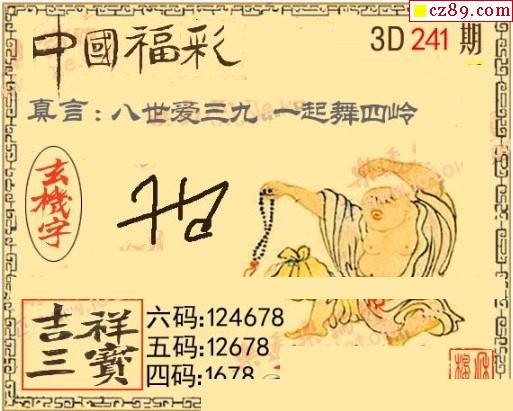 cz89.com
中國福彩
3D 241 期
真言:八世爱三九 一起舞四岭
玄機字
吉祥三寶
六码:124678
五码:12678
四码:1678